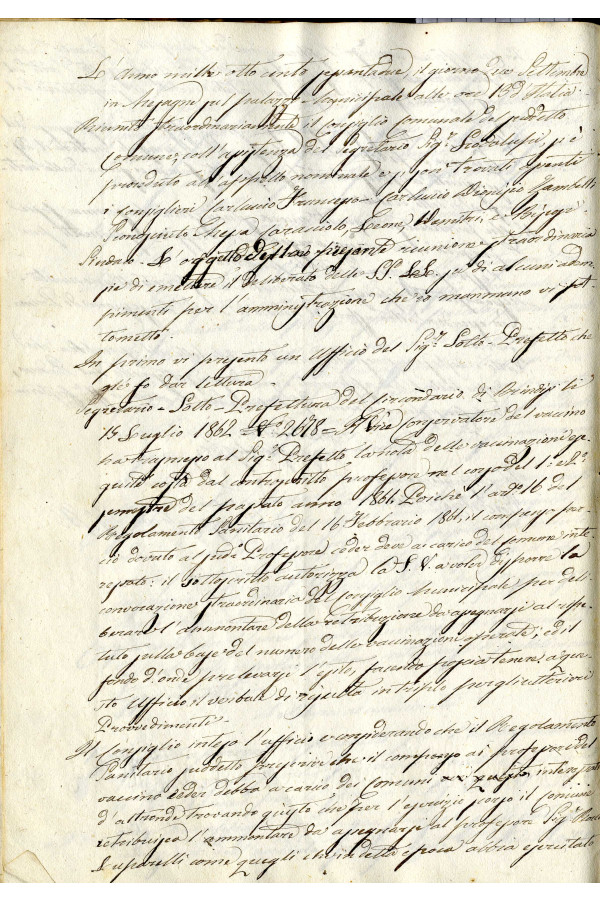 L'Anno mille otto cento sessantadue il giorno due Settembre
in Mesagne sul palazzo Municipale alle ore 16 d'Italia.
Riunito straordinariamente il Consiglio comunale del suddetto
comune, coll'assistenza del Segretario Sig.r si è
proceduto all'appello nominale e si son trovati presenti
i Consiglieri Carluccio Francesco = Carluccio Dionisio
Caracciolo, Leone, Demitri, e
Sindaco. Lo oggetto della presente riunione straordinaria
sie di emettere il deliberato delle SS. LL. su di alcuni adem
pimenti per l'amministrazione che io manmano vi sot
tometto.
In primo vi presento un Ufficio del Sig.r Sotto-Prefetto che
gle fo dar lettura.
Segretario = Sotto-Prefettura del circondario di Brindisi li
15 Luglio 1862 = N.o 2678 = Il Vice conservatore del vaccino
ha trasmesso al Sig.r Prefetto la nota delle vaccinazioni ese
guite costà dal controscritto professore nel corso del 1.o e 2.o
semestre del passato anno 1861. Poichè l'art.o 16 del
Regolamento Sanitario del 16 Febbraro 1861, il compenso per
ciò dovuto al sud.o Professore ceder deve a carico del comune inte
ressato: il sottoscritto autorizza la S. V. a voler disporre la
convocazione straordinaria del consiglio Municipale per deli
berare l'ammontare della retribuzione da assegnarsi al
tuto sulla base del numero delle vaccinazioni operate; ed il
fondo d'onde prelevarsi l'esito, facendo poscia tenere a que
sto Ufficio il verbale di risulta in triplo per gli ulteriori
Provvedimenti.
Il Consiglio inteso l'ufficio e considerando che il Regolamento
Sanitario suddetto prescrive che il compenso ai professori del
vaccino ceder debba a carico dei comuni
d'altronde trovando giusto che per l'esercizio scorso il comune
retribuisca l'ammontare da assegnarsi al professore Sig.r
come quegli che in detta epoca abbia esercitato